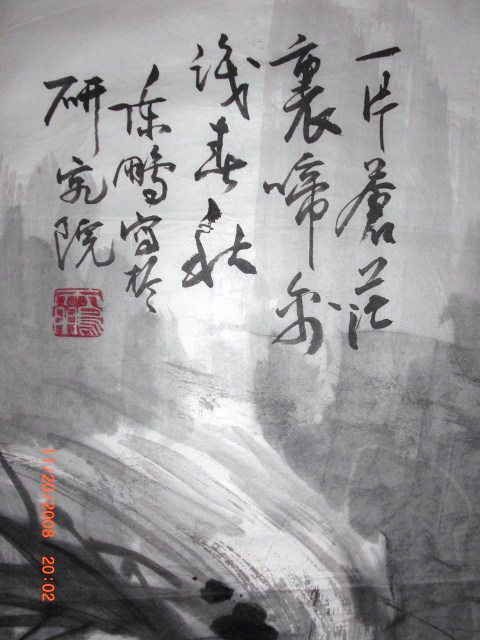 一片蒼茫
裏啼
識春秋
东鹏寫於
研究院
11/20/2008 20:02